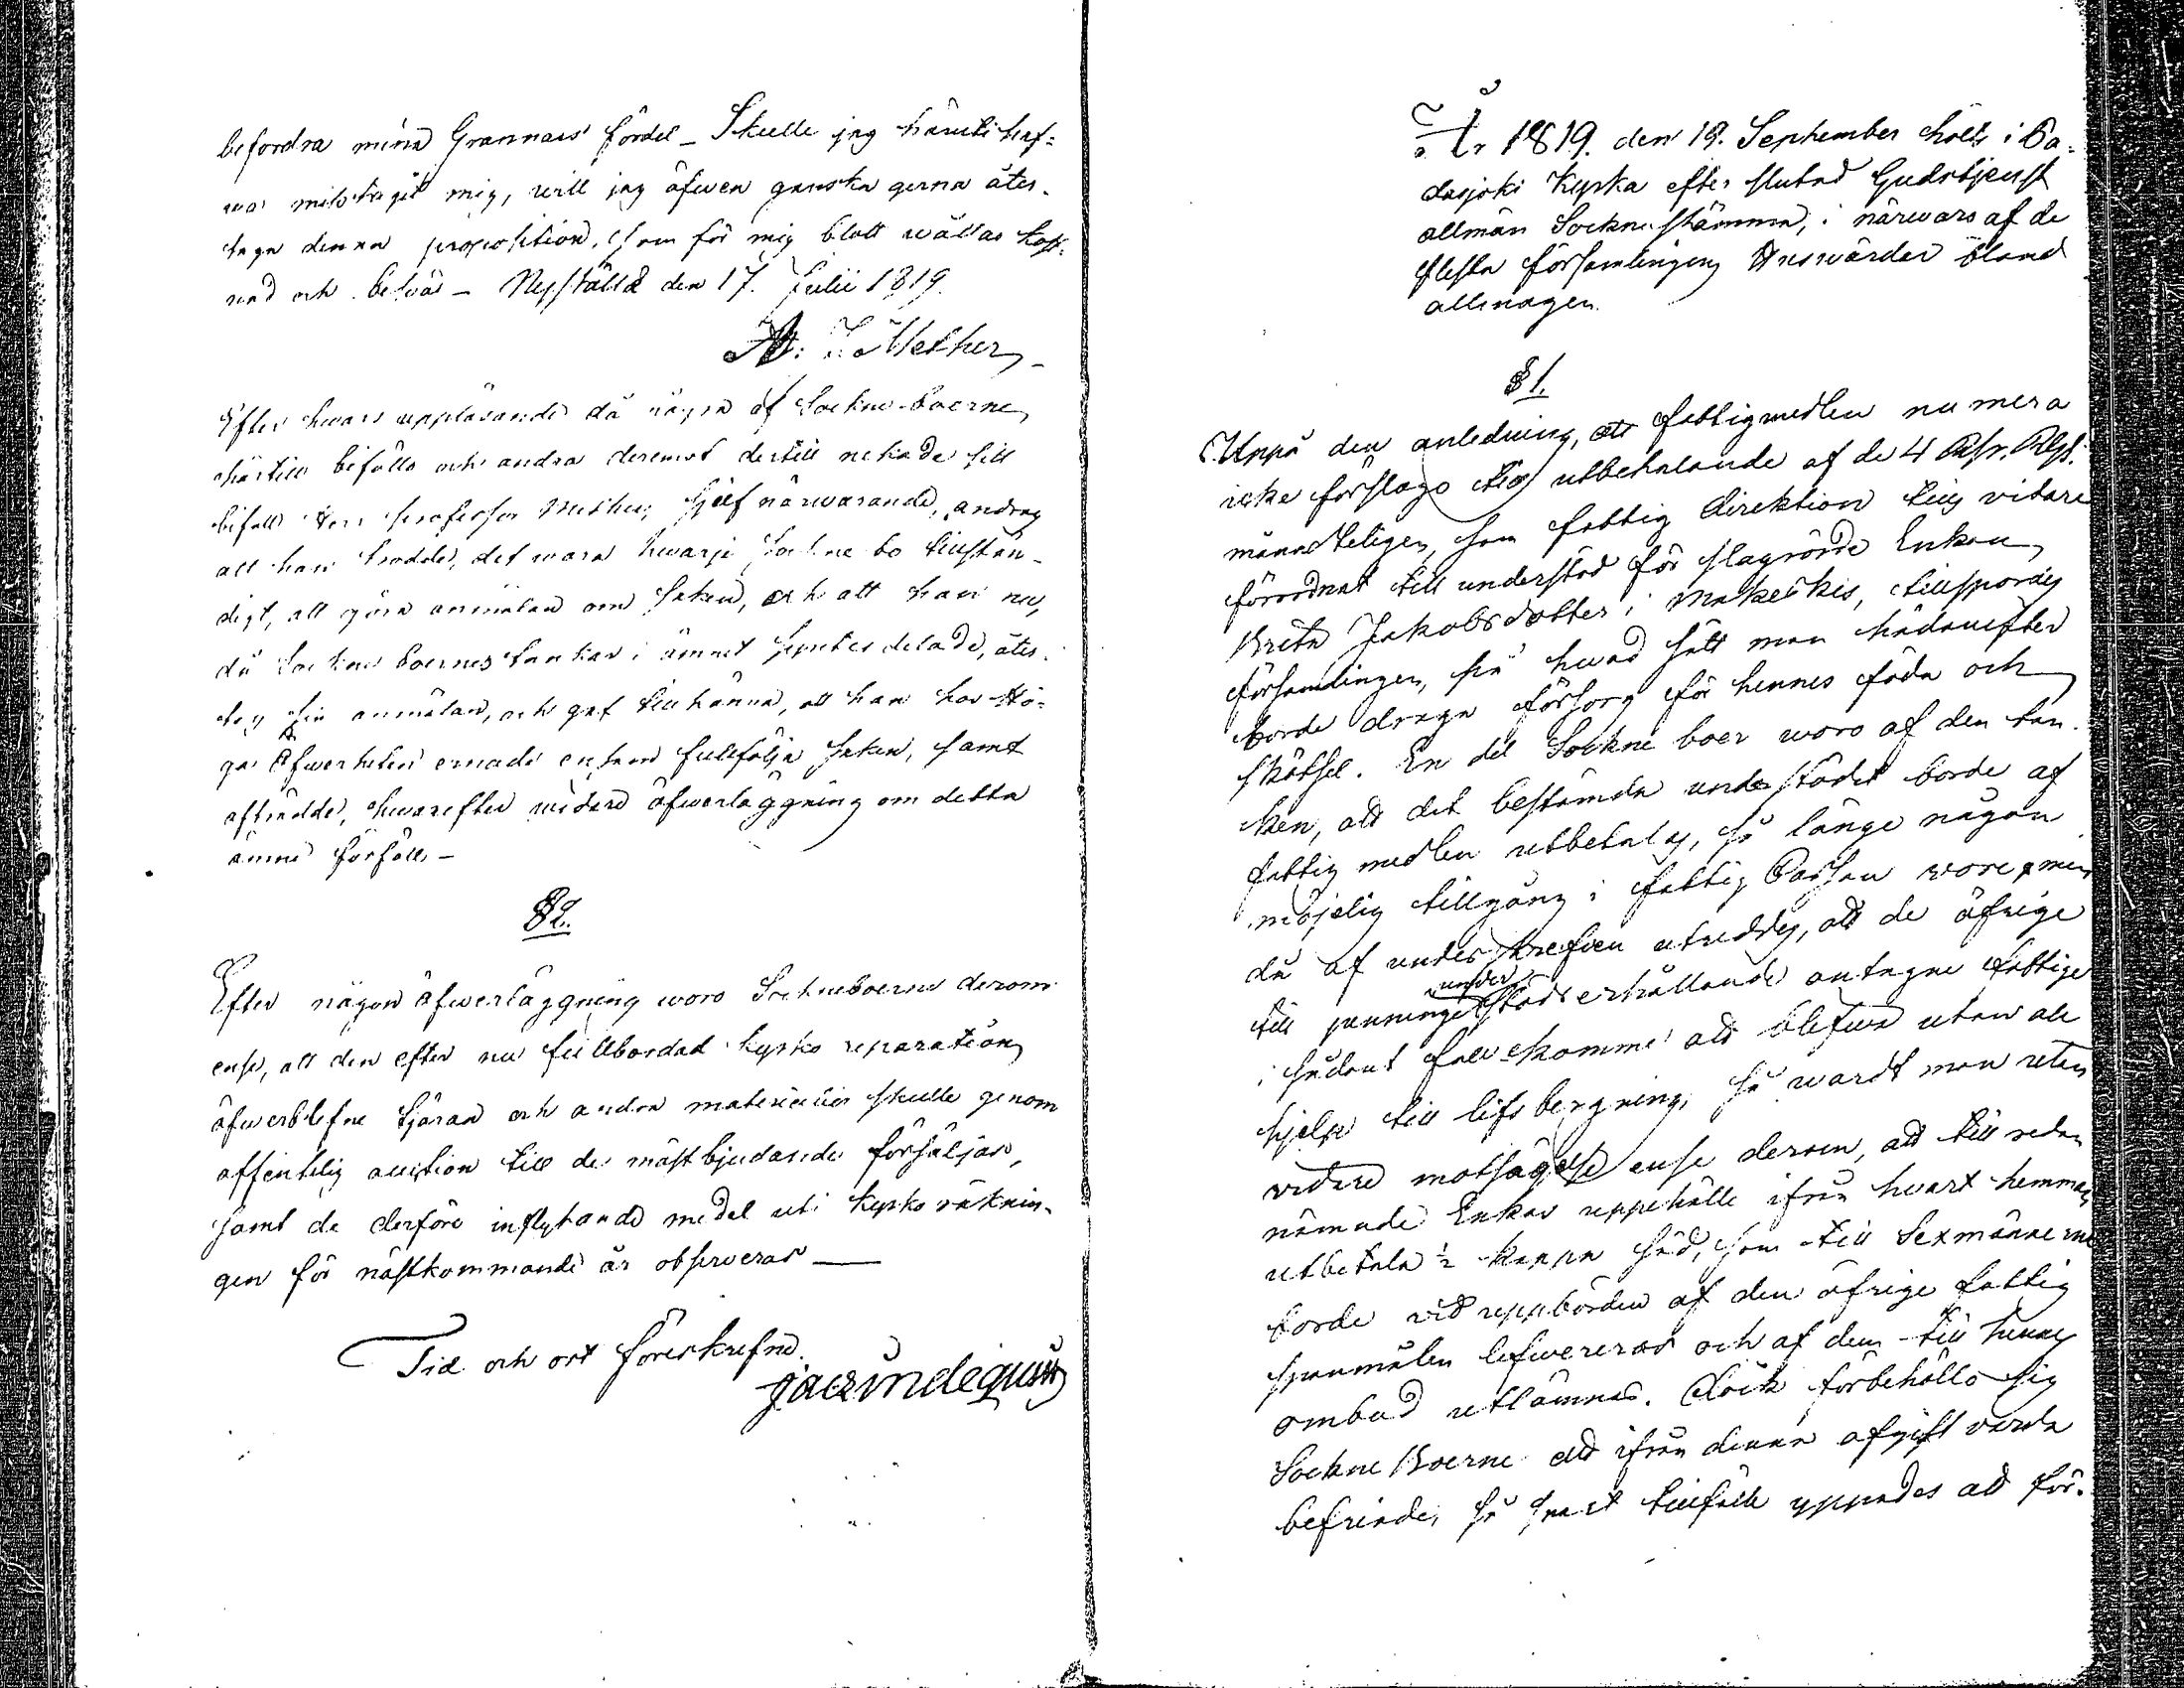 befordra mina Grannars fördel _ Skulle jag häruti haf-
wa misstagit mig, will jag äfwen ganska gerna åter-
taga denna proposition, som för mig blott wållar kost-
nad och beswär _ Nyställd den 17. Julii 1819.
A: J. Mether
Efter hwars uppläsande då några af Sockne-boerne
härtill biföllo och andra deremot dertill nekade sitt
bifall Herr Professor Mether, sjelf närwarande, androg
att han trodde, det wara hwarje Sockne bo tillstän-
digt, att göra anmälan om saken, och att han nu,
då Sockne boernes tankar i ämnet syntes delade, åter-
tog sin anmälan, och gaf tillkänna, att han hos Hö-
ga Öfwerheten ernade ensam fullfölja saken, samt
afträdde, hwarefter widare öfwerläggning om detta
ämne förföll. _
§ 2.
Efter någon öfwerläggning woro Sockneboerne derom
ense, att den efter nu fullbordad kyrko reparation
öfwerblefne tjäran och andra materialier skulle genom
offentelig auction till de mäst bjudande försäljas,
samt de derföre inflytande medel uti kyrko räknin-
gen för nästkommande år observeras ___
Tid och ort föreskrefne.
Jac: Indeqvist
År 1819. den 19. September hölls i Pa-
dasjoki Kyrka efter slutad Gudstjenst
allmän Socknestämma, i närwaro af de
flesta församlingens answarder bland
allmogen.
§ 1.
Uppå den anledning, att fattigmedlen numera
icke förslago till utbetalande af de 4 Rdr. Rgs.
månnateligen, som fattig Direktion till vidare
förordnat till understöd för slagrörde Enkan
Brita Jakobsdotter i Makerkis, tillspordes
församlingen, på hwad sätt man hädanefter
borde draga försorg för hennes föda och
skötsel. En del Sockne boer woro af den tan-
ken, att det bestämda understödet borde af
fattig medlen utbetalas, så länge någon
möjelig tillgång i fattig Cassan wore; men
då af underskrefven utreddes, att de öfrige
till penninge understöds erhållande antagne fattige
i sådant fall komme att blifwa utan all
hjelp till lifs bergning, så wardt man utan
vidare motsägelse ense derom, att till redan
nämnde Enkas uppehälle ifrån hwart hemman
utbetala ½ kappa säd, som till Sexmännerne
borde vid uppbörden af den öfrige fattig
spanmålen lefwereras och af dem till hennes
ombud utlämnas. Dock förbehöllo sig
Sockne Boerne att ifrån denna afgift varda
befriade, så snart tillfälle yppades att för-